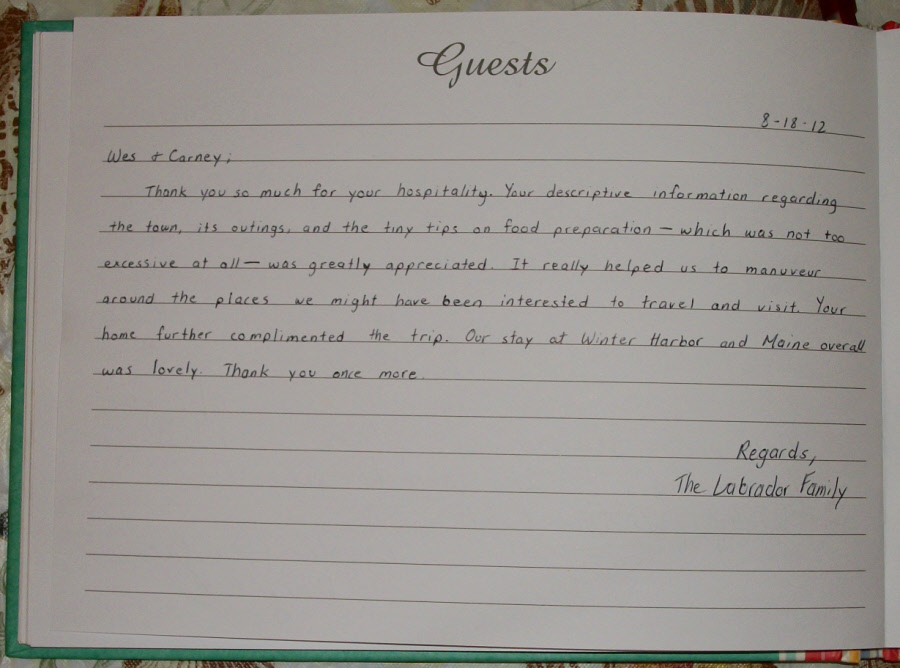 Guests
8-18-12
Wes & Carney;
Thank you so much for your hospitality. Your descriptive information regarding
the town, its outings, and the tiny tips on food preparation — which was not too
excessive at all — was greatly appreciated. It really helped us to manuveur
around the places we might have been interested to travel and visit. Your
home further complimented the trip. Our stay at Winter Harbor and Maine overall
was lovely. Thank you once more.
Regards,
The Labrador Family